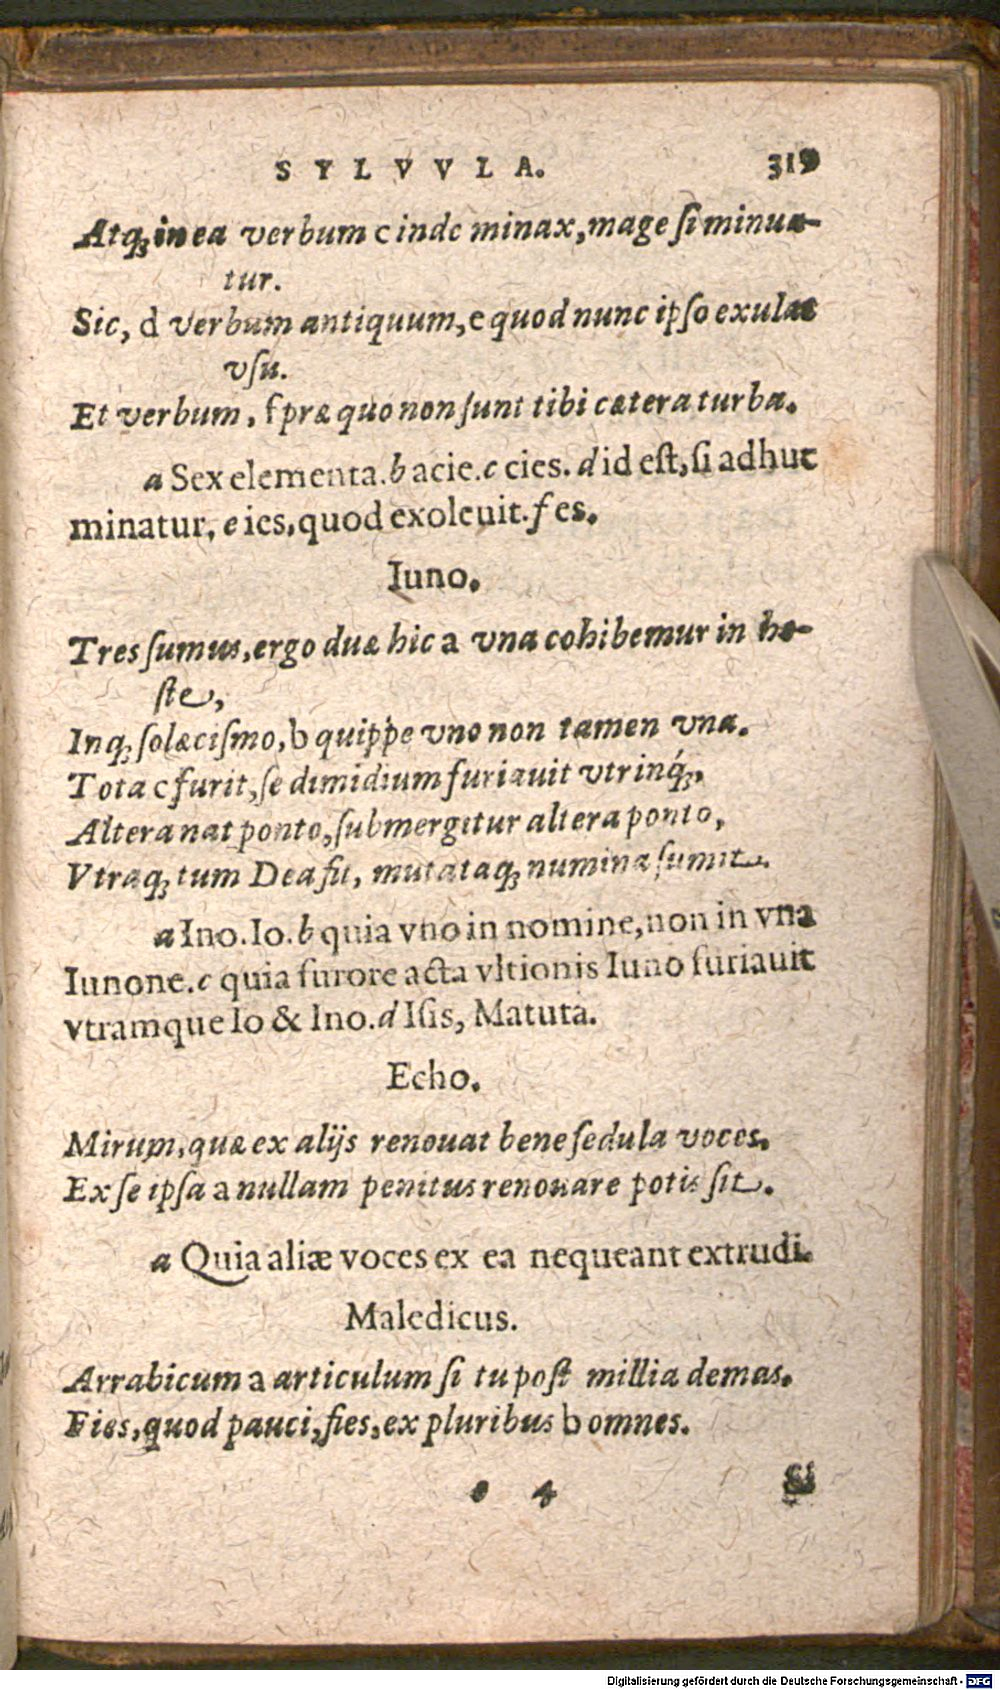 SYLVVLA. 319
Atq; in ea verbum c inde minax, mage si minua-
tur.
Sic, d verbum antiquum, e quod nunc ipso exulat
vsu.
Et verbum, f præ quo non sunt tibi cætera turba.
a Sex elementa. b acie. c cies. d id est, si adhuc
minatur, e ies, quod exoleuit. f es.
Iuno.
Tres sumus, ergo duæ hic a vna cohibemur in ho-
ste,
Inq; solæcismo, b quippe vno non tamen vna.
Tota c furit, se dimidium furiauit vtrinq́;,
Altera nat ponto, submergitur altera ponto,
Vtraq; tum Dea fit, mutataq; numina sumit.
a Ino. Io. b quia vno in nomine, non in vna
Iunone. c quia furore acta vltionis Iuno furiauit
vtramque Io & Ino. d Isis, Matuta.
Echo.
Mirum, quæ ex alijs renouat bene sedula voces,
Ex se ipsa a nullam penitus renouare potis sit.
a Quia aliæ voces ex ea nequeant extrudi.
Maledicus.
Arrabicum a articulum si tu post millia demas.
Fies, quod pauci, fies, ex pluribus b omnes.
e 4
Digitalisierung gefördert durch die Deutsche Forschungsgemeinschaft - DFG